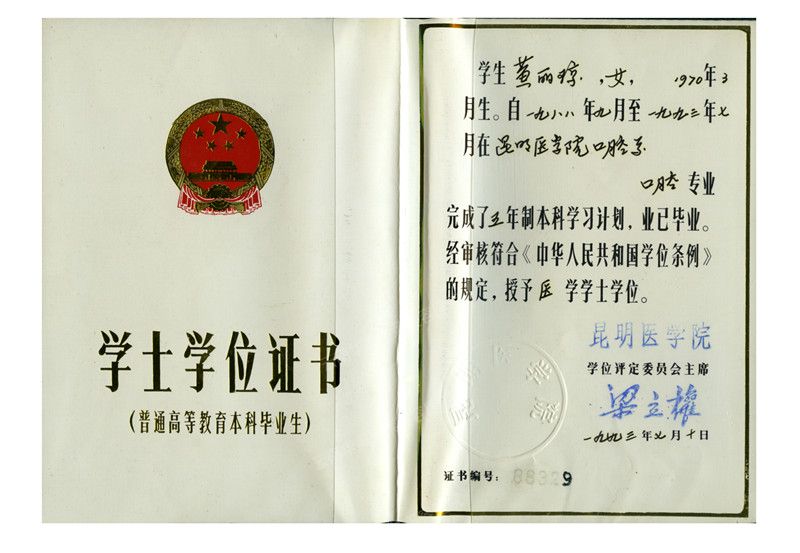 学士学位证书
(普通高等教育本科毕业生)
学生黄丽琼,女, 1970年3
月生。自一九八八年九月至一九九三年七
月在昆明医学院口腔系
口腔专业
完成了五年制本科学习计划,业已毕业。
经审核符合《中华人民共和国学位条例》
的规定,授予医学学士学位。
昆明医学院
学位评定委员会主席
梁立权
一九九三年七月十日
证书编号:88329